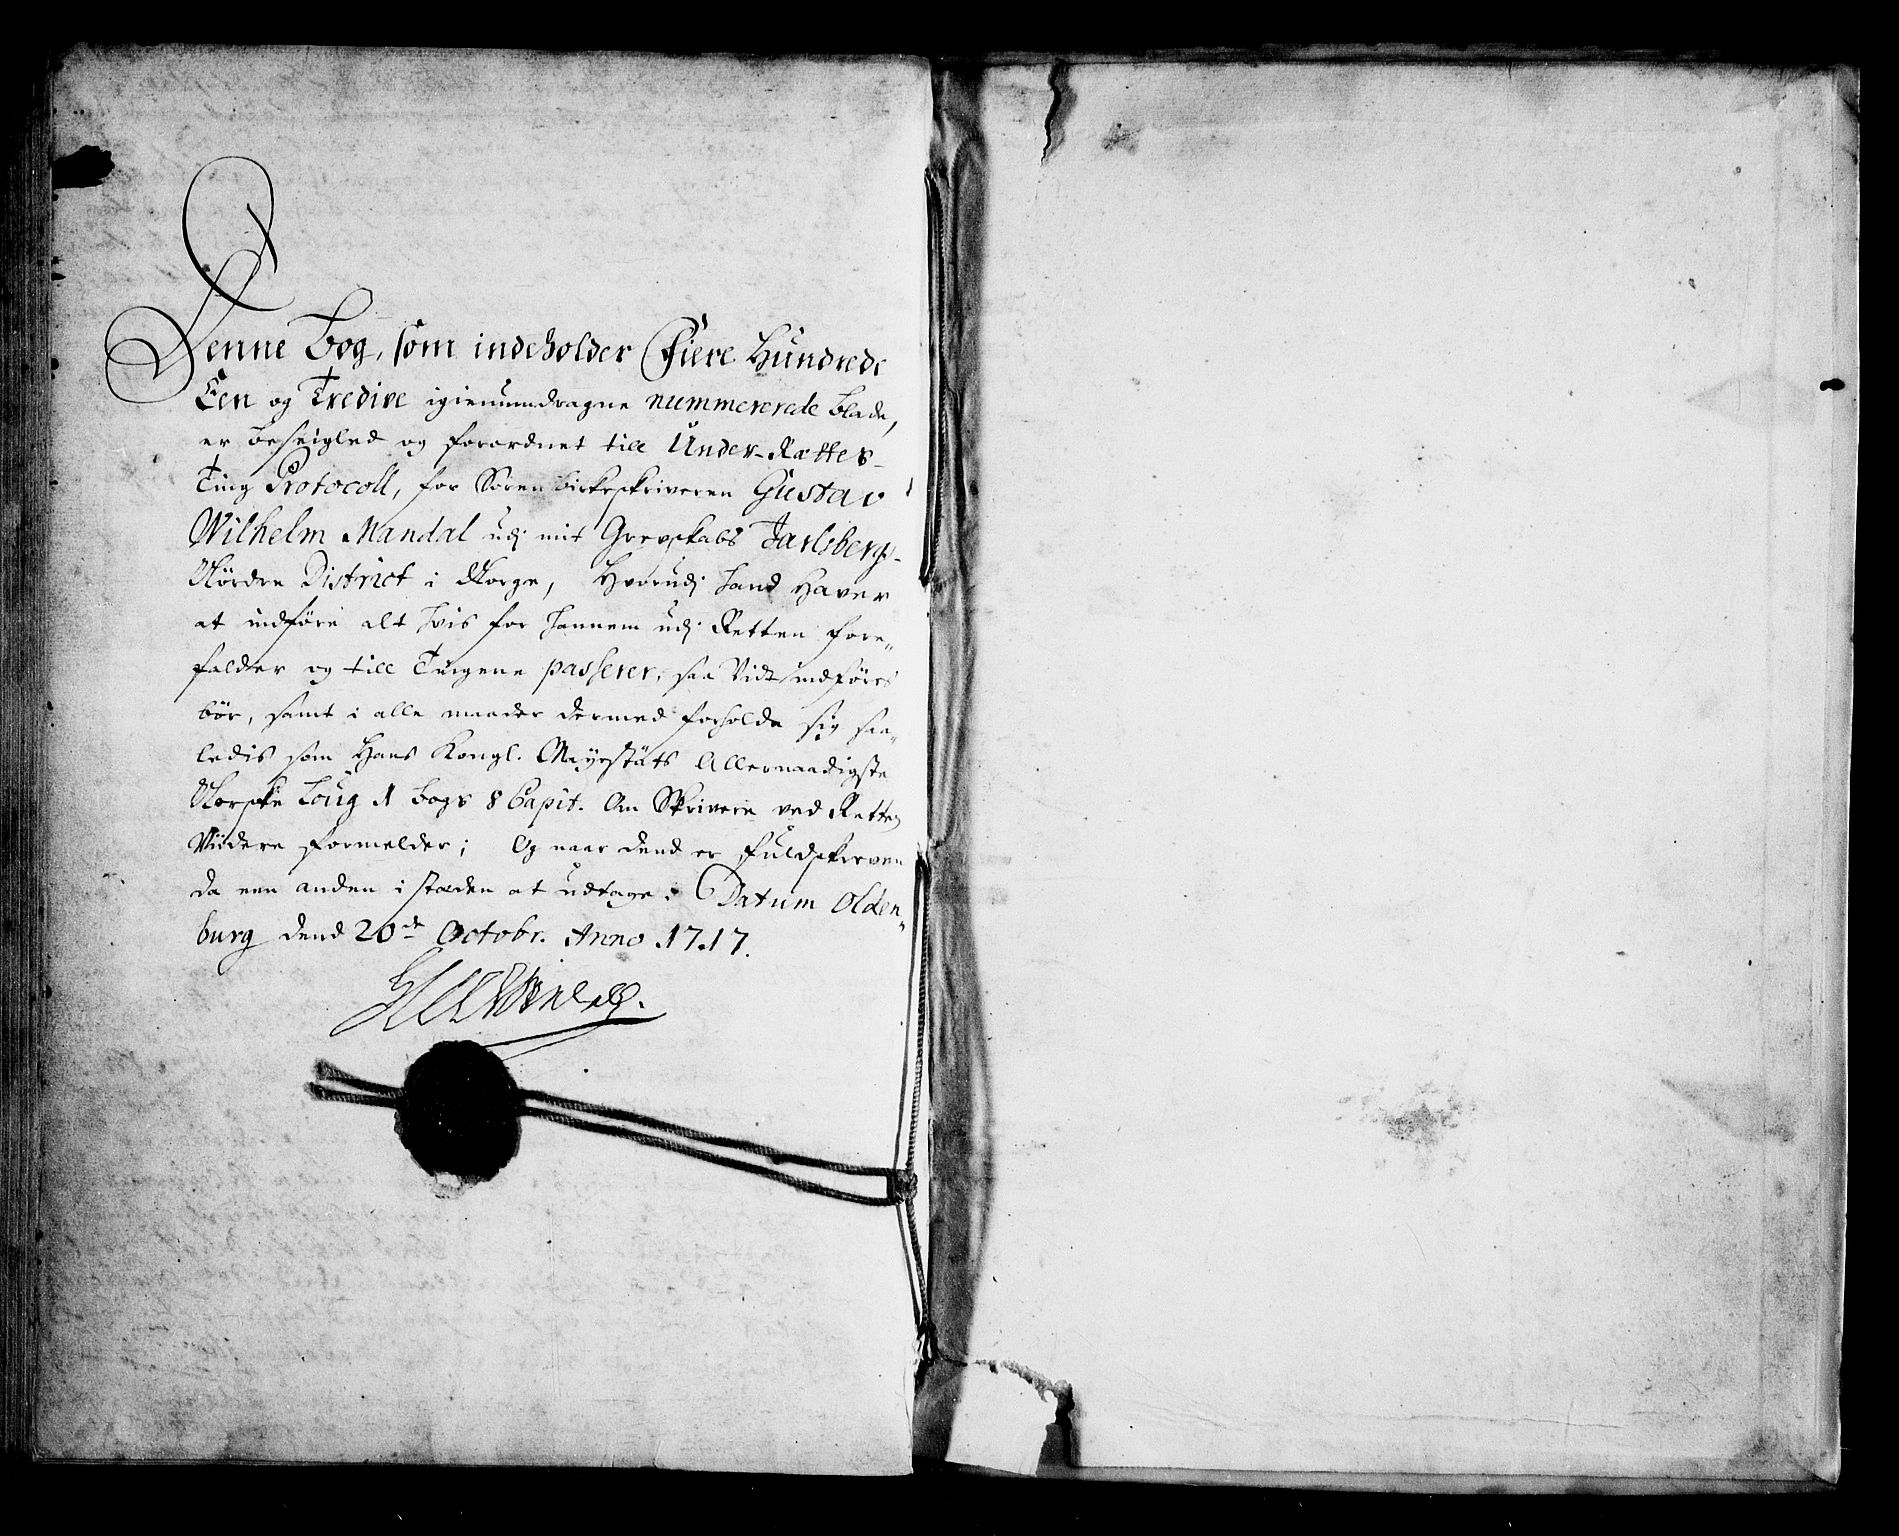 Denne Bog, som indeholder Fiere Hundrede
Een og Tredive igiennemdragne nummererede blade,
er beseigled og forordnet till Under-Rættes-
Ting Protocoll, for Soren birkeskriveren Gustav
Wilhelm Mandal udj mit Grevskabs Jarlsbergs
Nördre District i Norge, Hvorudj hand haver
at indföre alt hvis for hannem udj Retten fore„
falder og till Tingene passerer, saa Vidt indföres
bör, samt i alle maader dermed forholde sig saa„
ledis som Hans Kongl. Mayestäts Allernaadigste
Norske Loug 1 bogs 8 Capit. Om Skrivere ved Retten
Viidere formelder; Og naar dend er fuldskreven
da een anden i stæden at udtage; Datum Olden„
burg dend 20de Octobr. Anno 1717.